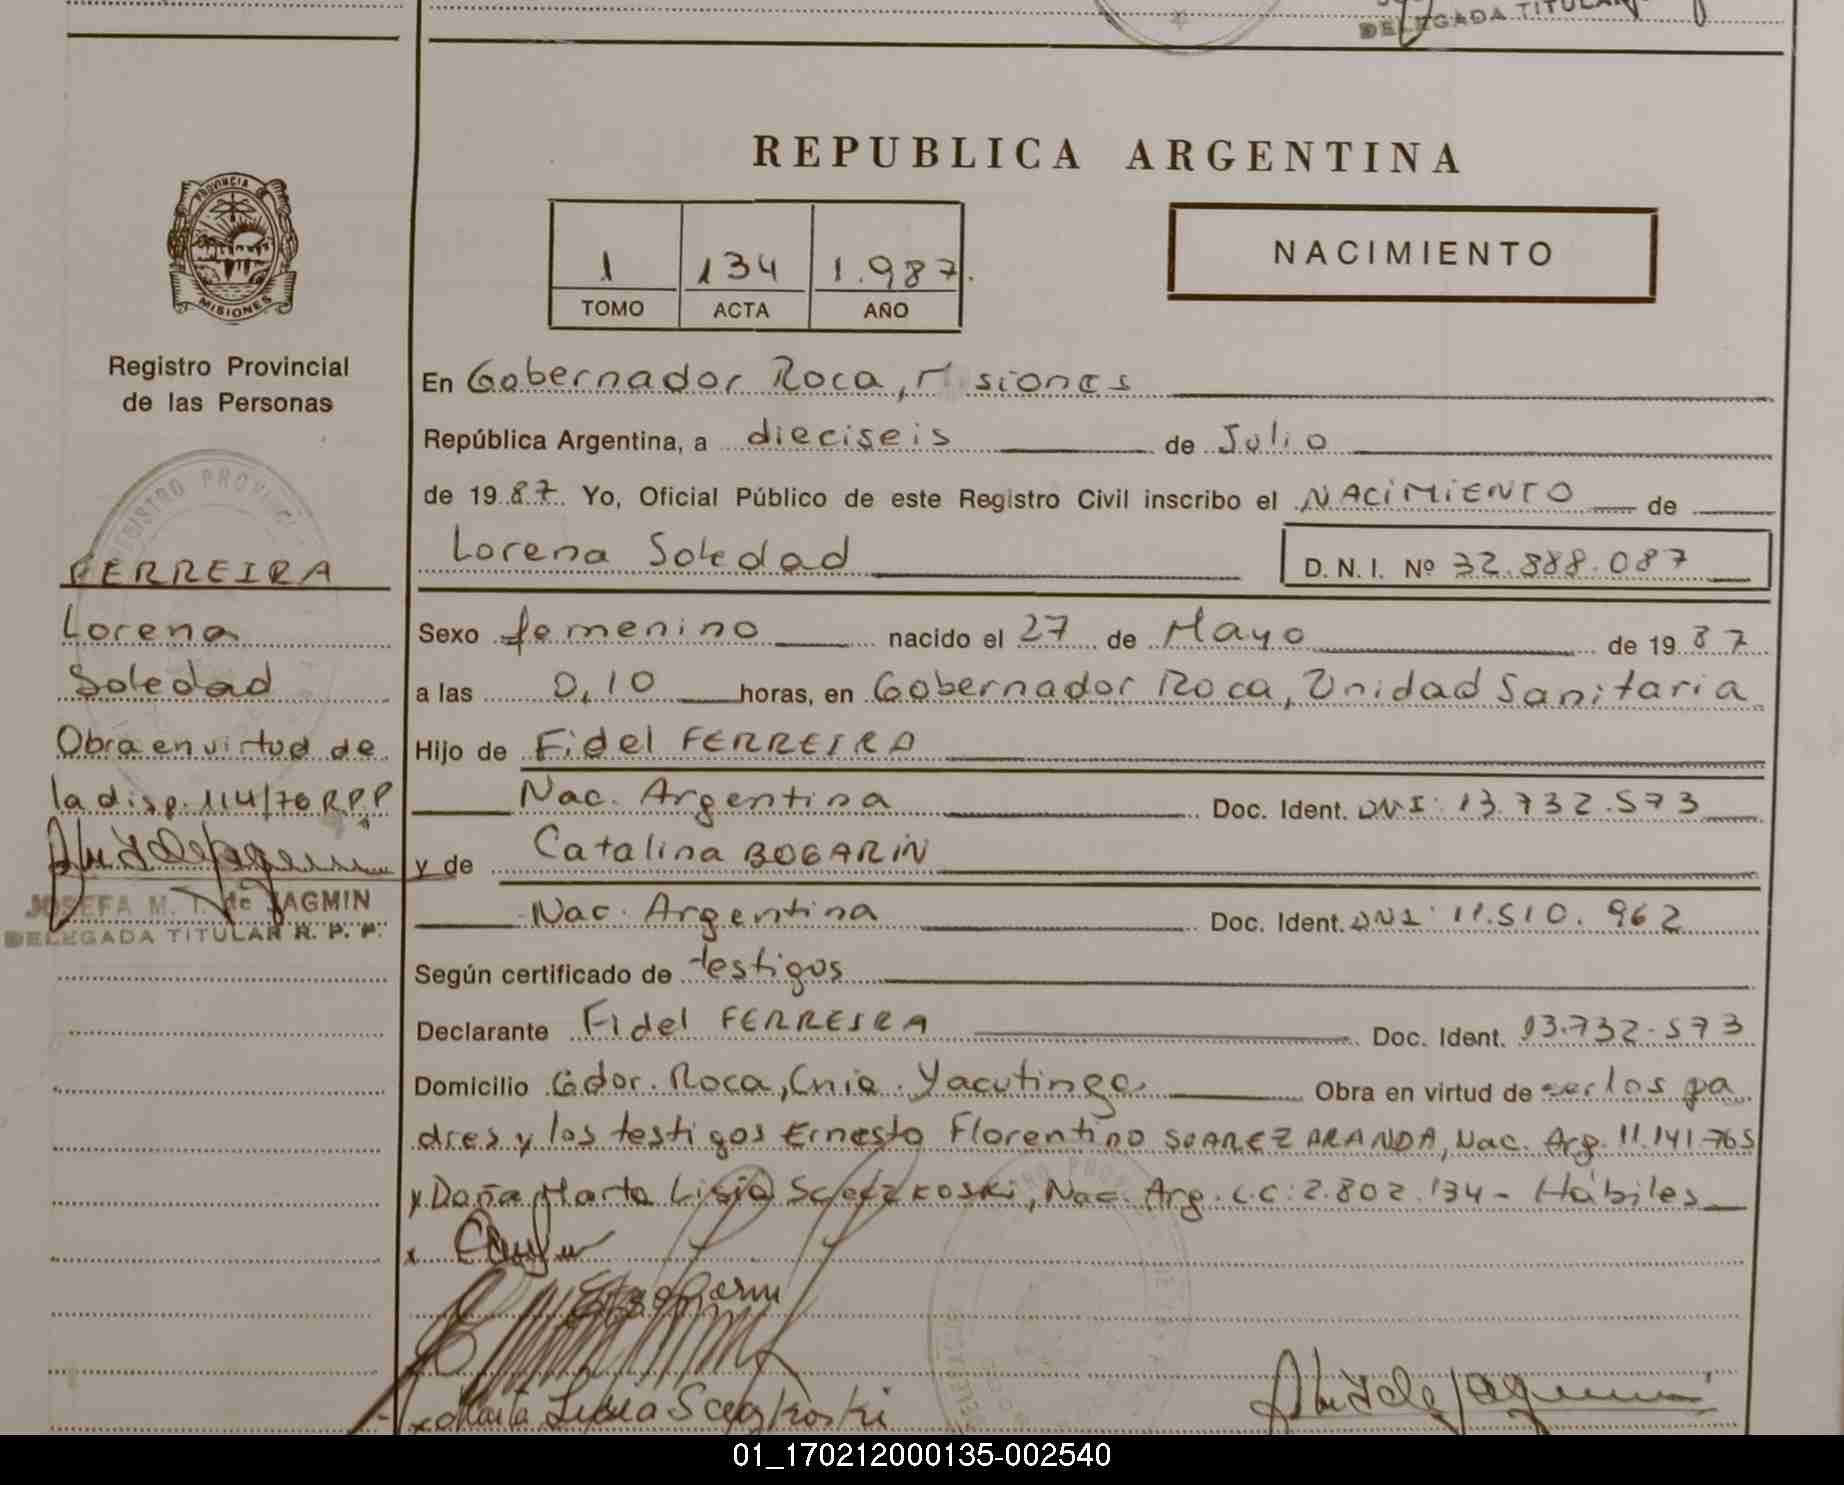 DELEGADA TITULAR
REPUBLICA ARGENTINA
PROVINCIA DE
MISIONES
1 134 1.987.
TOMO ACTA AÑO
NACIMIENTO
Registro Provincial
de las Personas
En Gobernador Roca, Misiones
República Argentina, a dieciseis de Julio
de 1987 Yo, Oficial Público de este Registro Civil inscribo el NACIMIENTO de
Lorena Soledad
D. N. I. Nº 32.888.087
REGISTRO PROVINCI
FERREIRA
Lorena
Soledad
Obra en virtud de
la disp. 114/76 R.P.P
JOSEFA M. T. de JAGMIN
DELEGADA TITULAR R. P. P.
Sexo femenino nacido el 27 de Mayo de 1987
a las 0,10 horas, en Gobernador Roca, Unidad Sanitaria
Hijo de Fidel FERREIRA
Nac. Argentina Doc. Ident. DNI: 13.732.573
y de Catalina BOGARIN
Nac. Argentina Doc. Ident. DNI: 11.510.962
Según certificado de testigos
Declarante Fidel FERREIRA Doc. Ident. 13.732.573
Domicilio Gdor. Roca, Cnia. Yacutinga Obra en virtud de ser los pa
dres y los testigos Ernesto Florentino SUAREZ ARANDA, Nac. Arg. 11.141.765
y Doña Marta Lidia Sceczkoski, Nac. Arg. L.C: 2.802.134 - Hábiles
Marta Lidia
01_170212000135-002540